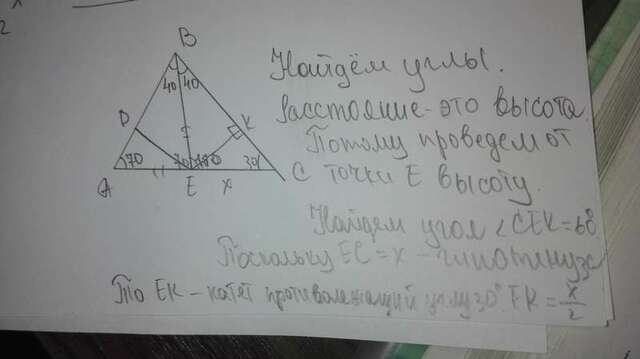 B
40 40
D
K
70
30
A
E
x
C
Найдём углы.
Расстояние - это высота.
Потому проведем от
точки E высоту.
Найдем угол ∠CEK = 60°
Поскольку EC = x - гипотенуза
То EK - катет противолежащий углу 30°. EK = x/2